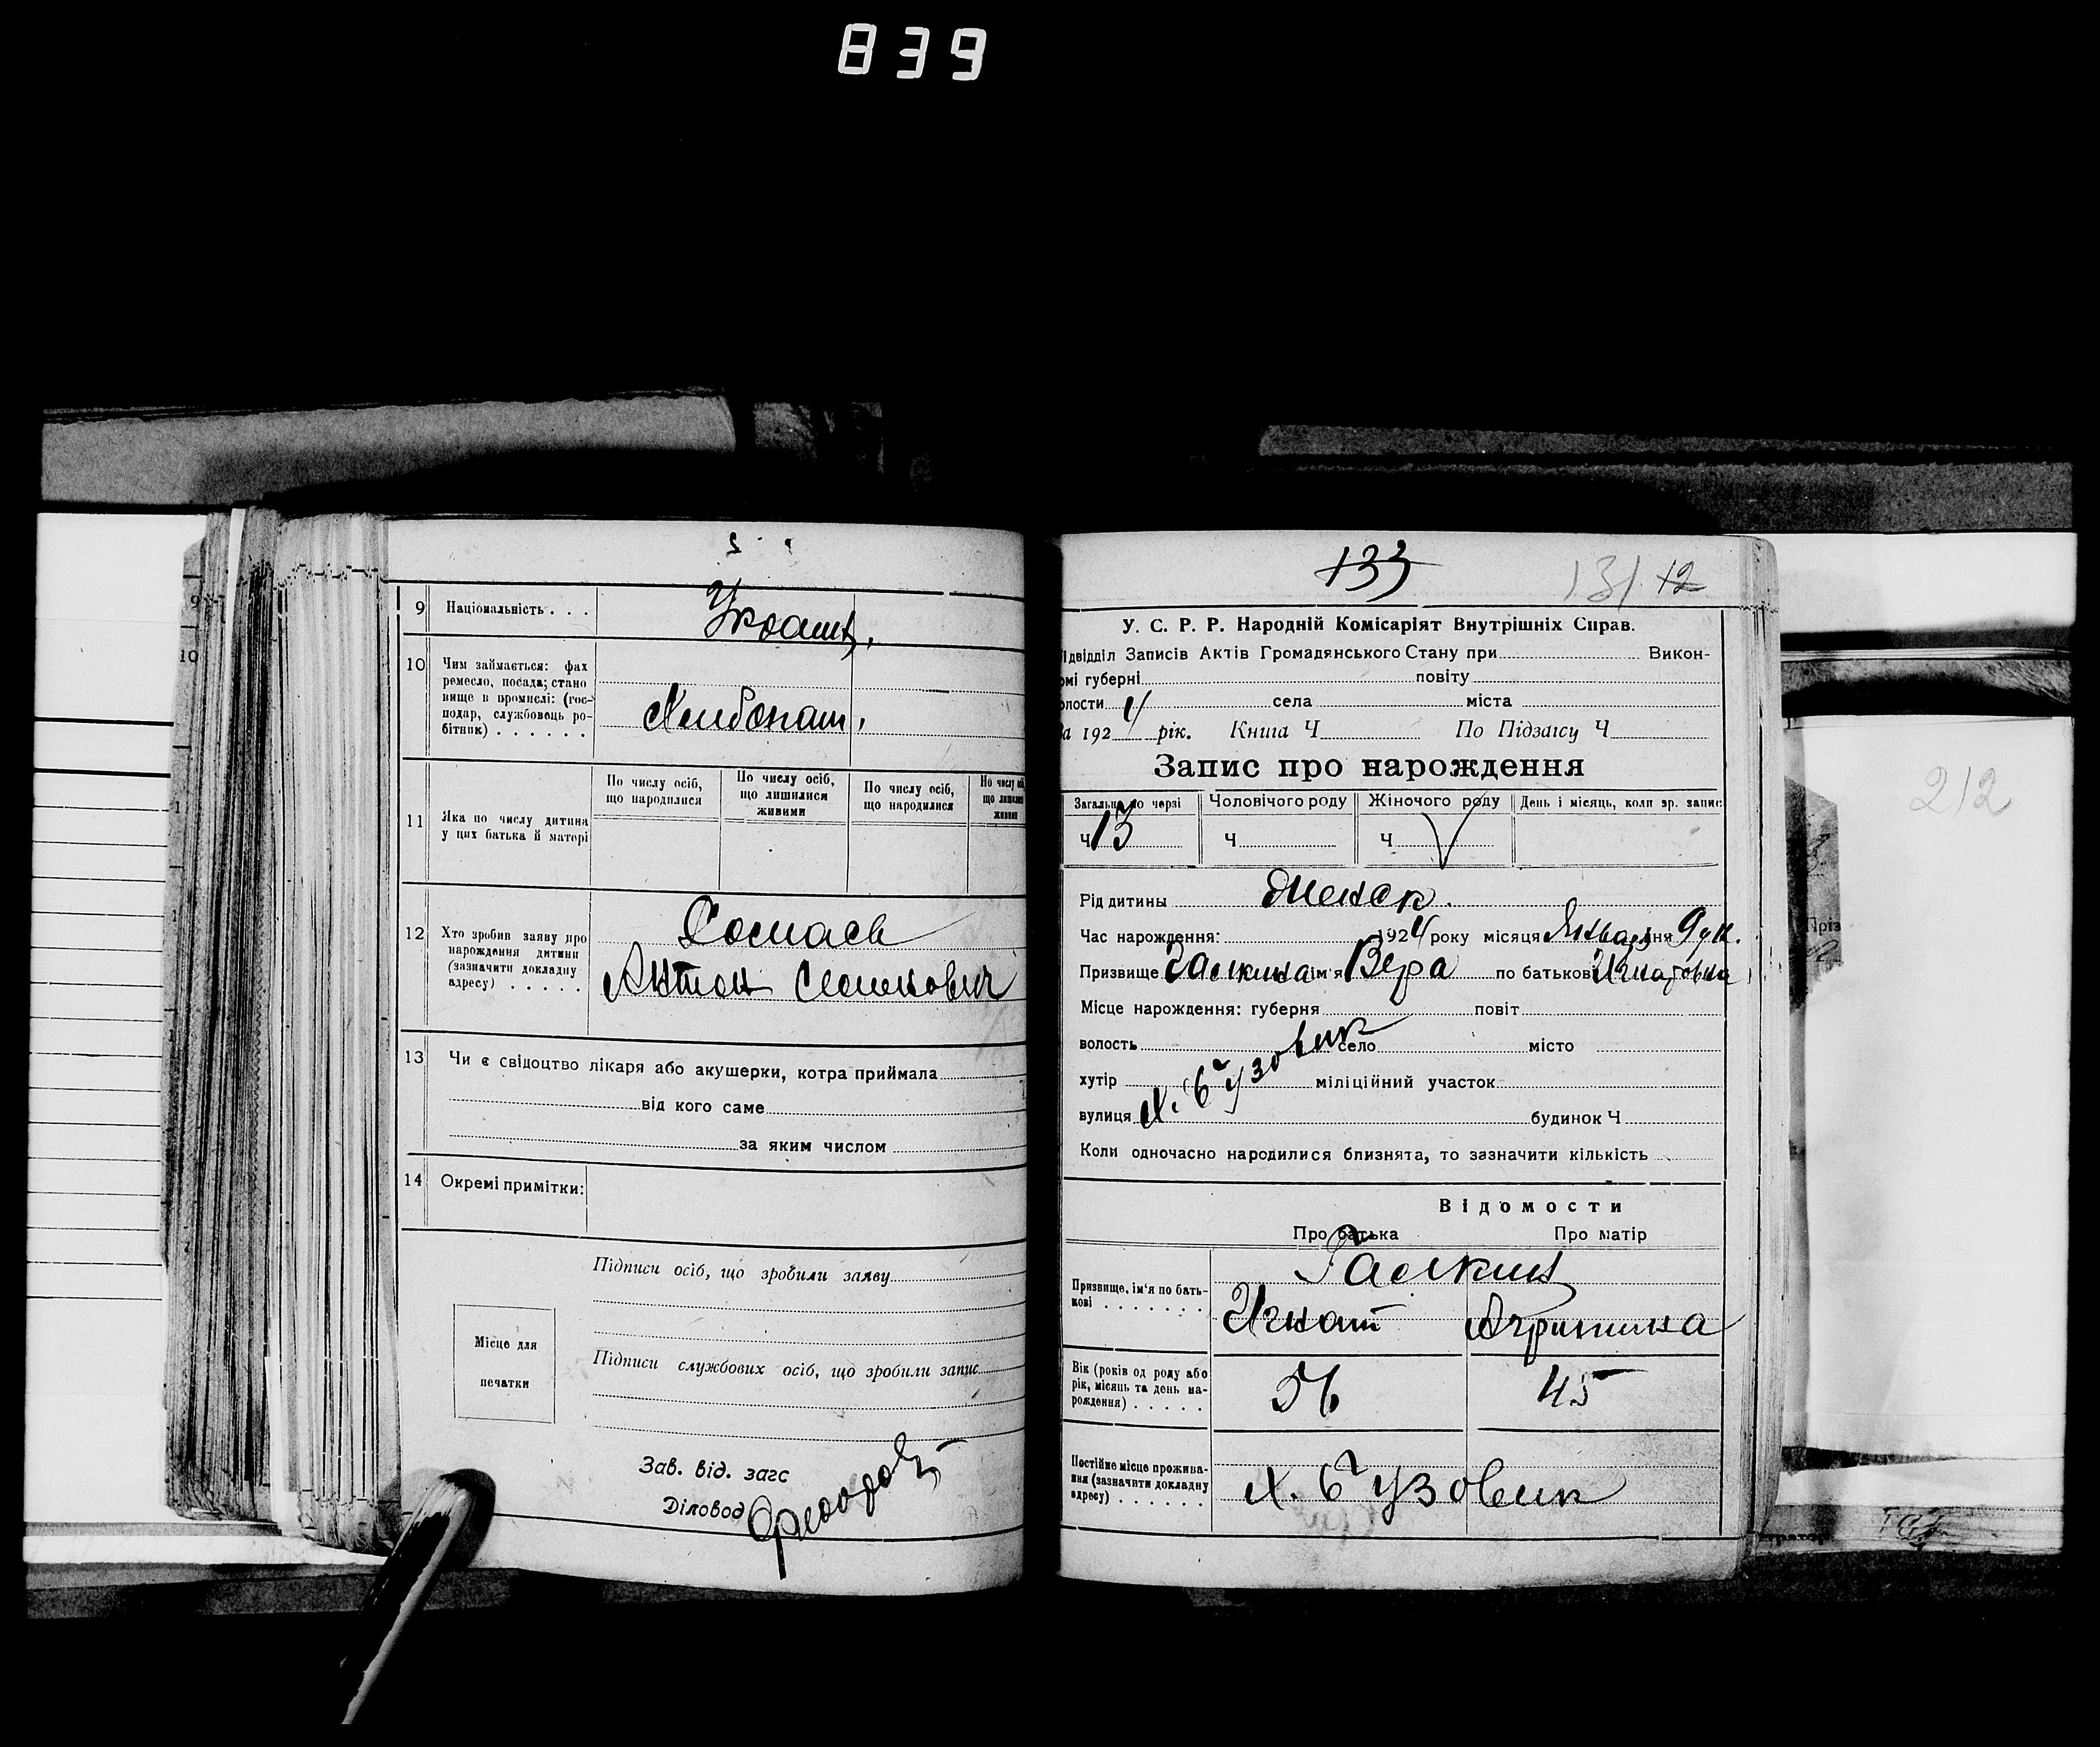 839
9 Національність . . .
Украин,
10 Чим займається: фах
ремесло, посада; стано
вище в промислі: (гос-
подар, службовець ро-
бітник) . . . . . .
Хлибопаш,
11 Яка по числу дитина
у цих батька й матері
По числу осіб,
що народилися
По числу осіб,
що лишилися
живими
По числу осіб,
що народилися
12 Хто зробив заяву про
нарождення дитини
(зазначити докладну
адресу) . . . . .
Антон
13 Чи є свідоцтво лікаря або акушерки, котра приймала
від кого саме
за яким числом
14 Окремі примітки:
Підписи осіб, що зробили заяву
Місце для
печатки
Підписи службових осіб, що зробили запис
Зав. від. загс
Діловод
133
131 12
У. С. Р. Р. Народній Комісаріят Внутрішніх Справ.
ідвідділ Записів Актів Громадянського Стану при Викон-
омі губерні повіту
олости села міста
а 192 4 рік. Книга Ч По Підзагсу Ч
Запис про нарождення
Загальн. по черзі Чоловічого роду Жіночого роду День і місяць, коли зр. запис
Ч 13 Ч Ч V
Рід дитины женск.
Час нарождення: 1924 року місяця Январ дня 9
Призвище Галкина ім'я Вера по батькові Игнатовна
Місце нарождення: губерня повіт
волость село місто
хутір міліційний участок
вулиця х. Бузовик будинок Ч
Коли одночасно народилися близнята, то зазначити кількість
Відомости
Про батька Про матір
Призвище, ім'я по бать-
кові . . . . . . .
Галкин
Игнат Агрипина
Вік (років од роду або
рік, місяць та день на-
рождення) . . . . .
56 45
Постійне місце прожива-
ння (зазначити докладну
адресу) . . . . . . .
х. Бузовик
212